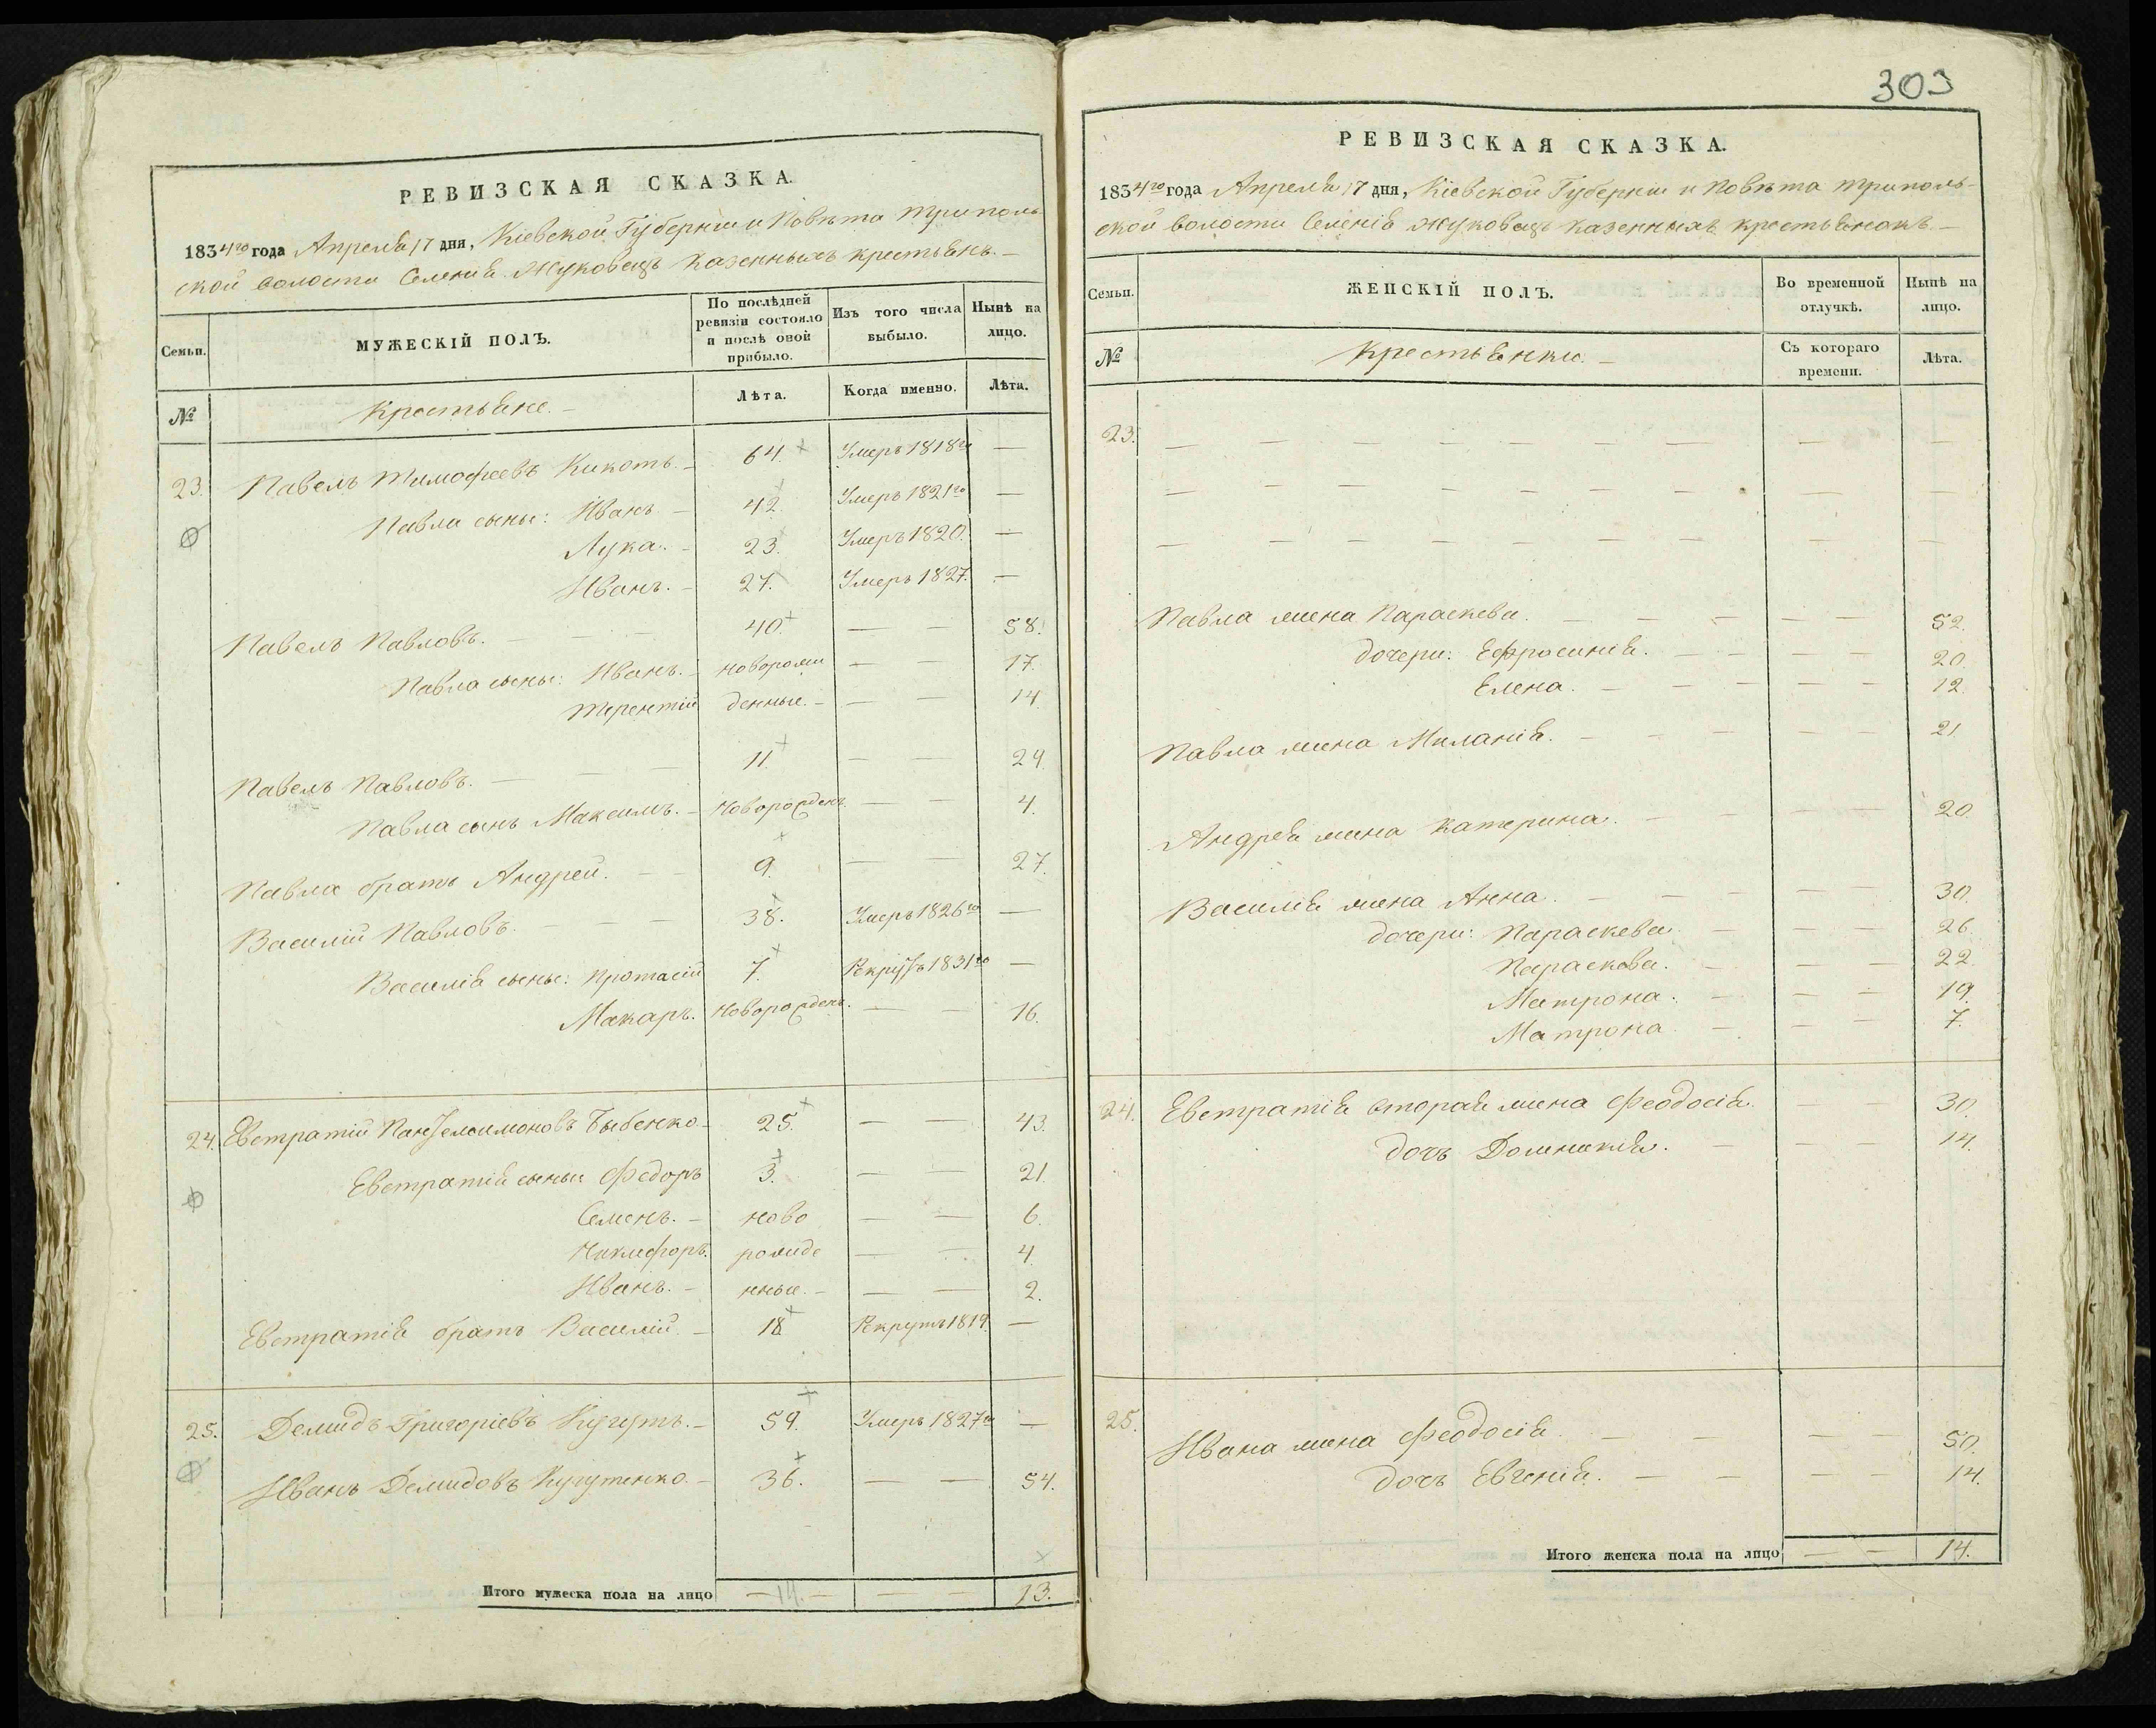 РЕВИЗСКАЯ СКАЗКА.
1834го года Апреля 17 дня, Кіевской Губерніи и Повѣта Триполь-
ской волости Селенія Жуковецъ Казенныхъ крестьянъ. —
Семьи. МУЖЕСКІЙ ПОЛЪ. По послѣдней ревизіи состояло и послѣ оной прибыло. Изъ того числа выбыло. Нынѣ на лицо.
№ Крестьяне. — Лѣта. Когда именно. Лѣта.
23. Павелъ Тимофеевъ Кикоть. — 64. Умеръ 1818го —
Павла сыны: Иванъ — 42. Умеръ 1821го —
Лука. — 23. Умеръ 1820. —
Иванъ. — 27. Умеръ 1827. —
Павелъ Павловъ. — 40. — — 58.
Павла сыны: Иванъ. — новорож — — 17.
Терентій денные. — — — 14.
Павелъ Павловъ. — — — 11. — — 29.
Павла сынъ Максимъ. — Новорожденъ — — 4.
Павла братъ Андрей. — — 9. — — 27.
Василій Павловъ. — — — 38. Умеръ 1826го —
Василія сыны: Протасій 7. Рекрутъ 1831го —
Макаръ. Новорожденъ. — — 16.
24. Евстратій Пантелеимоновъ Бабенко — 25. — — 43.
Евстратія сыны: Федоръ 3. — — 21.
Семенъ. — ново — — 6.
Никифоръ. рожде — — 4.
Иванъ. — нные. — — — 2.
Евстратія братъ Василій. — 18. Рекрутъ 1819. —
25. Демидъ Григоріевъ Кугутъ. — 59. Умеръ 1827го —
Иванъ Демидовъ Кугутенко. — 36. — — 54.
Итого мужеска пола на лицо — 14. — — — 13.
303
РЕВИЗСКАЯ СКАЗКА.
1834го года Апреля 17 дня, Кіевской Губерніи и Повѣта Триполь-
ской волости Селенія Жуковецъ Казенныхъ крестьянокъ —
Семьи. ЖЕНСКІЙ ПОЛЪ. Во временной отлучкѣ. Нынѣ на лицо.
№ Крестьянки. — Съ котораго времени. Лѣта.
23. — — — — — — — — —
— — — — — — — — —
— — — — — — — — —
Павла жена Параскева. — — — — — 52.
дочери: Ефросинія. — — — — — 20.
Елена. — — — — — 12.
Павла жена Миланія. — — — — — 21
Андрея жена Катерина. — — — — 20.
Василія жена Анна. — — — — 30.
дочери: Параскева. — — — 26.
Параскева. — — — 22.
Матрона. — — — 19.
Матрона — — — 7.
24. Евстратія вторая жена Феодосія. — — 30.
дочь Домникія. — — — 14.
25. Ивана жена Феодосія. — — — 50.
дочь Евгенія. — — — — 14.
Итого женска пола на лицо — — 14.